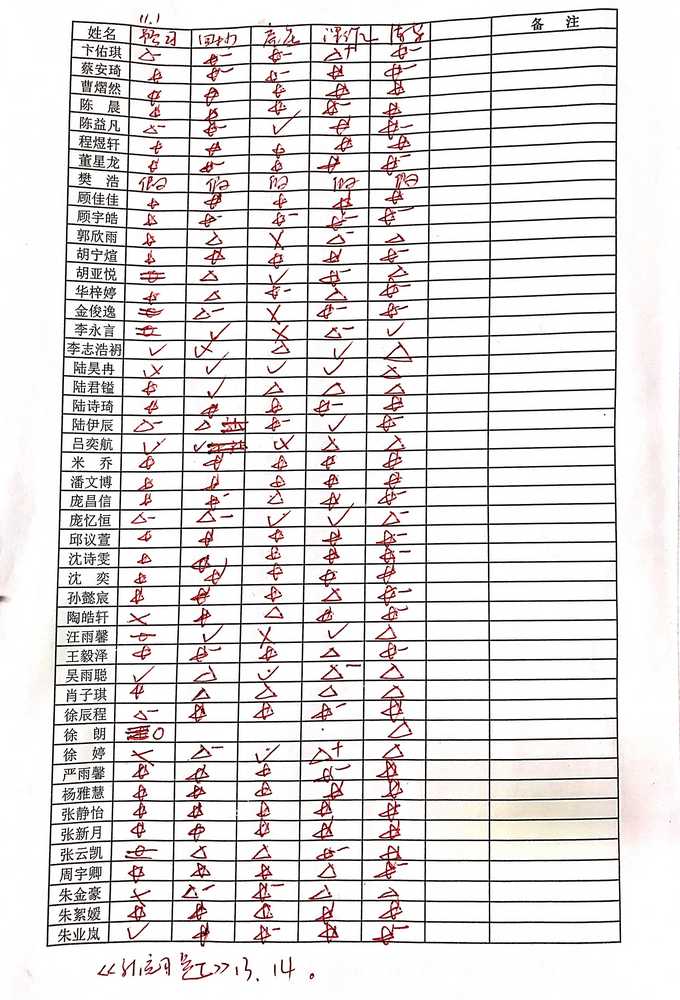 11.1
姓名 备注
卞佑琪 △- ☆- ☆- △+ ☆-
蔡安琦 ☆ ☆- ☆- ☆ ☆-
曹熠然 ☆ ☆ ☆ ☆ ☆
陈晨 ☆ ☆ ☆- ☆- ☆
陈益凡 △- ☆- ✓ ☆ ☆-
程煜轩 ☆ ☆ ☆ ☆ ☆
董星龙 ☆ ☆- ☆ ☆ ☆-
樊浩 假 假 假 假 假
顾佳佳 ☆ ☆ ☆ ☆ ☆
顾宇皓 ☆ ☆- ☆- ☆- ☆-
郭欣雨 ☆ △ × △- △
胡宁煊 ☆ ☆ ☆ ☆ ☆
胡亚悦 △ ✓ ☆- △
华梓婷 ☆ △ ☆- △ ☆
金俊逸 △- × ☆- ☆-
李永言 ✓ × △- ✓
李志浩祤 ✓ △ ✓ △
陆昊冉 ✓ ✓ ✓ △
陆君镒 ☆ ✓ △ △ △
陆诗琦 ☆ ☆ ☆ ☆- ☆
陆伊辰 △- △ ☆- ✓ ☆-
吕奕航 ✓ ✓ △ △
米乔 ☆ ☆ ☆ ☆ ☆
潘文博 ☆ ☆ ☆ ☆ ☆
庞昌信 ☆ ☆- △ ☆ ☆-
庞忆恒 △- △- ✓ ✓ △-
邱议萱 ☆ ☆ ☆ ☆ ☆-
沈诗雯 ☆ ☆ ☆ ☆ ☆-
沈奕 ☆ ☆ ☆ ☆ ☆
孙懿宸 ☆ ☆ ☆ △ ☆-
陶皓轩 × ☆ △ ☆ ☆
汪雨馨 ✓ × ✓ △
王毅泽 ☆ ☆- ☆ △ ☆
吴雨聪 ✓ △ ✓ △- △
肖子琪 ☆ △ △ △ △
徐辰程 △- ☆ ☆ ☆- ☆
徐朗 0 △
徐婷 × △- ✓ △+ △
严雨馨 ☆ ☆ ☆ ☆- ☆
杨雅慧 ☆ ☆ ☆ ☆ ☆
张静怡 ☆ ☆ ☆ ☆ ☆
张新月 ☆ ☆ ☆ ☆ ☆
张云凯 △ △ ☆- ☆
周宇卿 ☆ ☆ ☆ △ ☆-
朱金豪 × △- ☆- △ △
朱絮嫒 ☆ ☆ ☆ ☆ ☆
朱业岚 ✓ ☆ ☆- ☆ ☆-
13、14。